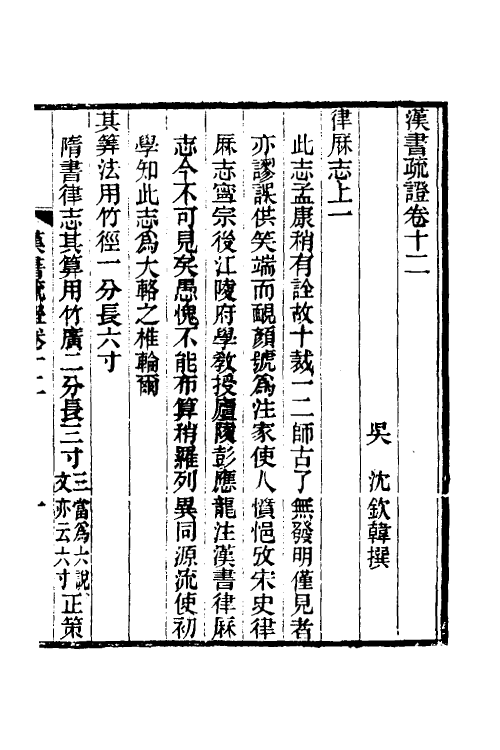 漢書疏證卷十二
吳 沈欽韓撰
律厤志上一
此志孟康稍有詮故十裁一二師古了無發明僅見者
亦謬誤供笑端而靦顏號為注家使人憤悒攷宋史律
厤志寧宗後江陵府學教授廬陵彭應龍注漢書律厤
志今不可見矣愚愧不能布算稍羅列異同源流使初
學知此志為大輅之椎輪爾
其筭法用竹徑一分長六寸
隋書律志其算用竹廣二分長三寸三當為六說文亦云六寸正策
漢書疏證卷十二 一